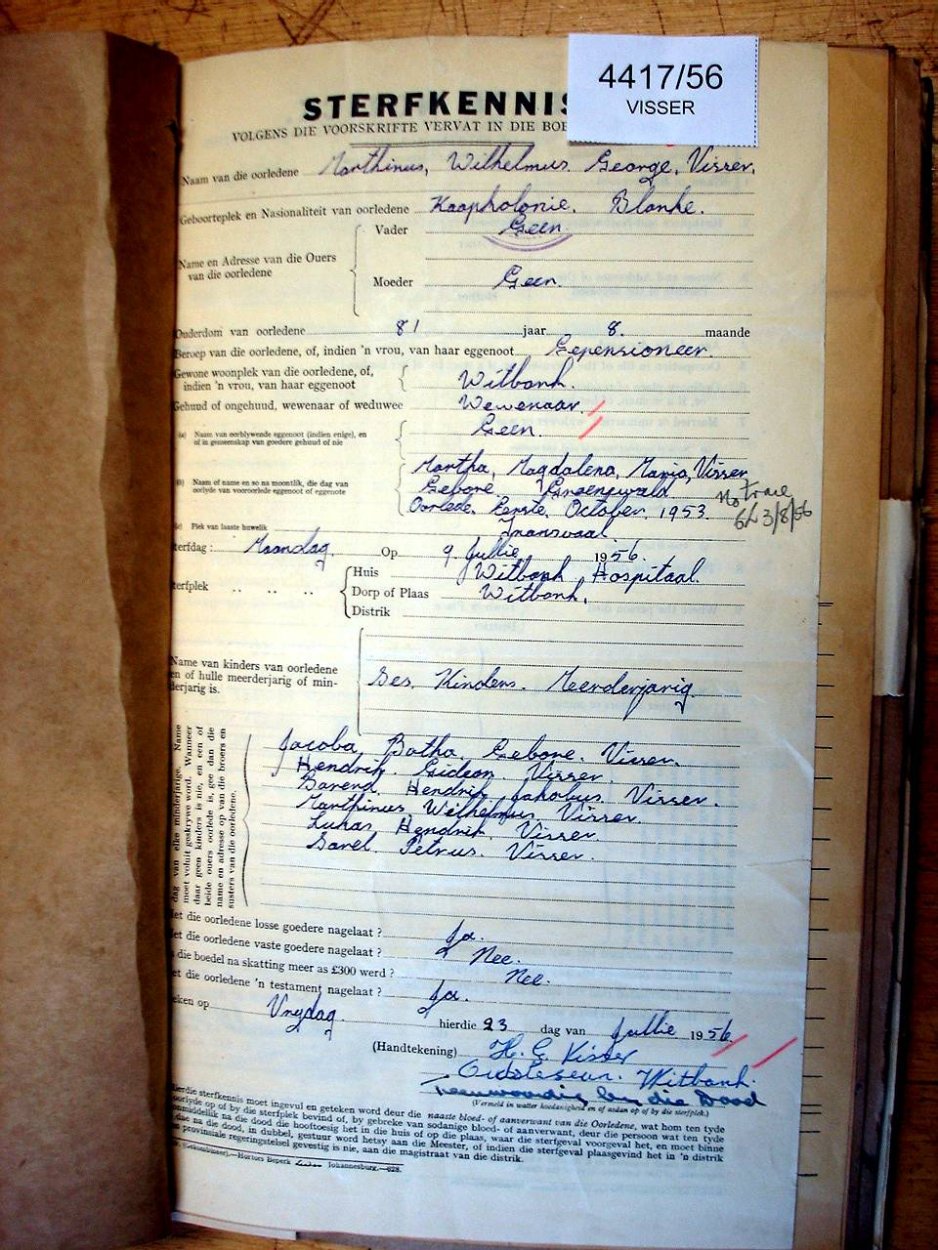 4417/56
VISSER
STERFKENNIS
VOLGENS DIE VOORSKRIFTE VERVAT IN DIE BOE
Naam van die oorledene Marthinus, Wilhelmus. George. Visser.
Geboorteplek en Nasionaliteit van oorledene Kaapkolonie. Blanke.
Vader Geen
Name en Adresse van die Ouers
van die oorledene
Moeder Geen.
Ouderdom van oorledene 81 jaar 8. maande
Beroep van die oorledene, of, indien 'n vrou, van haar eggenoot Gepensioneer.
Gewone woonplek van die oorledene, of,
indien 'n vrou, van haar eggenoot Witbank.
Gehuud of ongehuud, wewenaar of weduwee Wewenaar.
(a) Naam van oorblywende eggenoot (indien enige), en
of in gemeenskap van goedere gehuud of nie Geen.
Martha, Magdalena, Maria, Visser
(b) Naam of name en so na moontlik, die dag van
oorlyde van vooroorlede eggenoot of eggenote Gebore Groenewald
Oorlede. Eerste. October. 1953.
No trace
3/8/56
(c) Plek van laaste huwelik Transvaal
terfdag : Maandag. Op 9 Jullie 1956.
Huis Witbank Hospitaal.
terfplek .. .. .. Dorp of Plaas Witbank.
Distrik
Name van kinders van oorledene
en of hulle meerderjarig of min-
derjarig is.
Ses. Kinders. Meerderjarig.
dag van elke minderjarige. Name
moet voluit geskrywe word. Wanneer
daar geen kinders is nie, en een of
beide ouers oorlede is, gee dan die
name en adresse op van die broers en
susters van die oorledene.
Jacoba, Botha Gebore. Visser.
Hendrik. Gideon. Visser.
Barend. Hendrik, Jakobus. Visser.
Marthinus Wilhelmus. Visser.
Lukas, Hendrik. Visser.
Sarel Petrus. Visser.
et die oorledene losse goedere nagelaat ? Ja.
et die oorledene vaste goedere nagelaat ? Nee.
s die boedel na skatting meer as £300 werd ? Nee.
et die oorledene 'n testament nagelaat ? Ja.
eken op Vrydag. hierdie 23 dag van Jullie 1956
(Handtekening) H. G. Visser
Oudste seun. Witbank.
teenwoordig by die Dood
(Vermeld in watter hoedanigheid en of aldan op of by die sterfplek.)
Hierdie sterfkennis moet ingevul en geteken word deur die naaste bloed- of aanverwant van die Oorledene, wat hom ten tyde
oorlyde op of by die sterfplek bevind of, by gebreke van sodanige bloed- of aanverwant, deur die persoon wat ten tyde
onmiddellik na die dood die hooftoesig het in die huis of op die plaas, waar die sterfgeval voorgeval het, en moet binne
dae na die dood, in dubbel, gestuur word hetsy aan die Meester, of indien die sterfgeval plaasgevind het in 'n distrik
provinsiale regeringstelsel gevestig is nie, aan die magistraat van die distrik.
Hortors Beperk Johannesburg.—628.